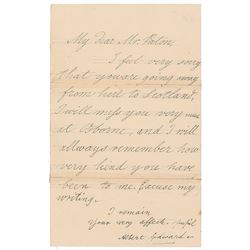 My dear Mr. Paton,
I feel very sorry
that you are going away
from here to Scotland,
I will miss you very much
at Osborne, and I will
allways remember how
very kind you have
been to me. Excuse my
writing.
I remain
Your very affect. pupil
Albert Edward